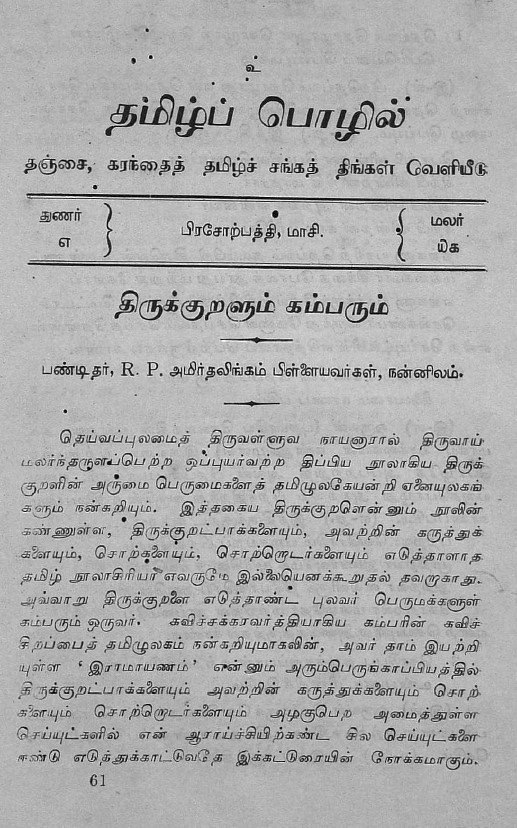 உ
தமிழ்ப் பொழில்
தஞ்சை, கரந்தைத் தமிழ்ச் சங்கத் திங்கள் வெளியீடு
துணர் எ } பிரசோற்பத்தி, மாசி. { மலர் ௰௧
திருக்குறளும் கம்பரும்
பண்டிதர், R. P. அமிர்தலிங்கம் பிள்ளையவர்கள், நன்னிலம்.
தெய்வப்புலமைத் திருவள்ளுவ நாயனாரால் திருவாய்
மலர்ந்தருளப்பெற்ற ஒப்புயர்வற்ற திப்பிய நூலாகிய திருக்
குறளின் அருமை பெருமைகளைத் தமிழுலகேயன்றி ஏனையுலகங்
களும் நன்கறியும். இத்தகைய திருக்குறளென்னும் நூலின்
கண்ணுள்ள, திருக்குறட்பாக்களையும், அவற்றின் கருத்துக்
களையும், சொற்களையும், சொற்றொடர்களையும் எடுத்தாளாத
தமிழ் நூலாசிரியர் எவருமே இல்லையெனக்கூறுதல் தவறாகாது.
அவ்வாறு திருக்குறளை எடுத்தாண்ட புலவர் பெருமக்களுள்
கம்பரும் ஒருவர். கவிச்சக்கரவர்த்தியாகிய கம்பரின் கவிச்
சிறப்பைத் தமிழுலகம் நன்கறியுமாகலின், அவர் தாம் இயற்றி
யுள்ள ‘இராமாயணம்’ என்னும் அரும்பெருங்காப்பியத்தில்
திருக்குறட்பாக்களையும் அவற்றின் கருத்துக்களையும் சொற்
களையும் சொற்றொடர்களையும் அழகுபெற அமைத்துள்ள
செய்யுட்களில் என் ஆராய்ச்சியிற்கண்ட சில செய்யுட்களை
ஈண்டு எடுத்துக்காட்டுவதே இக்கட்டுரையின் நோக்கமாகும்.
61